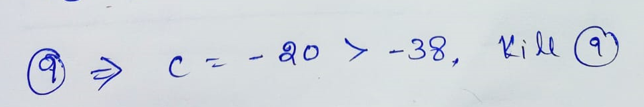 ⑨ ⇒ c = -20 > -38, Kill ⑨